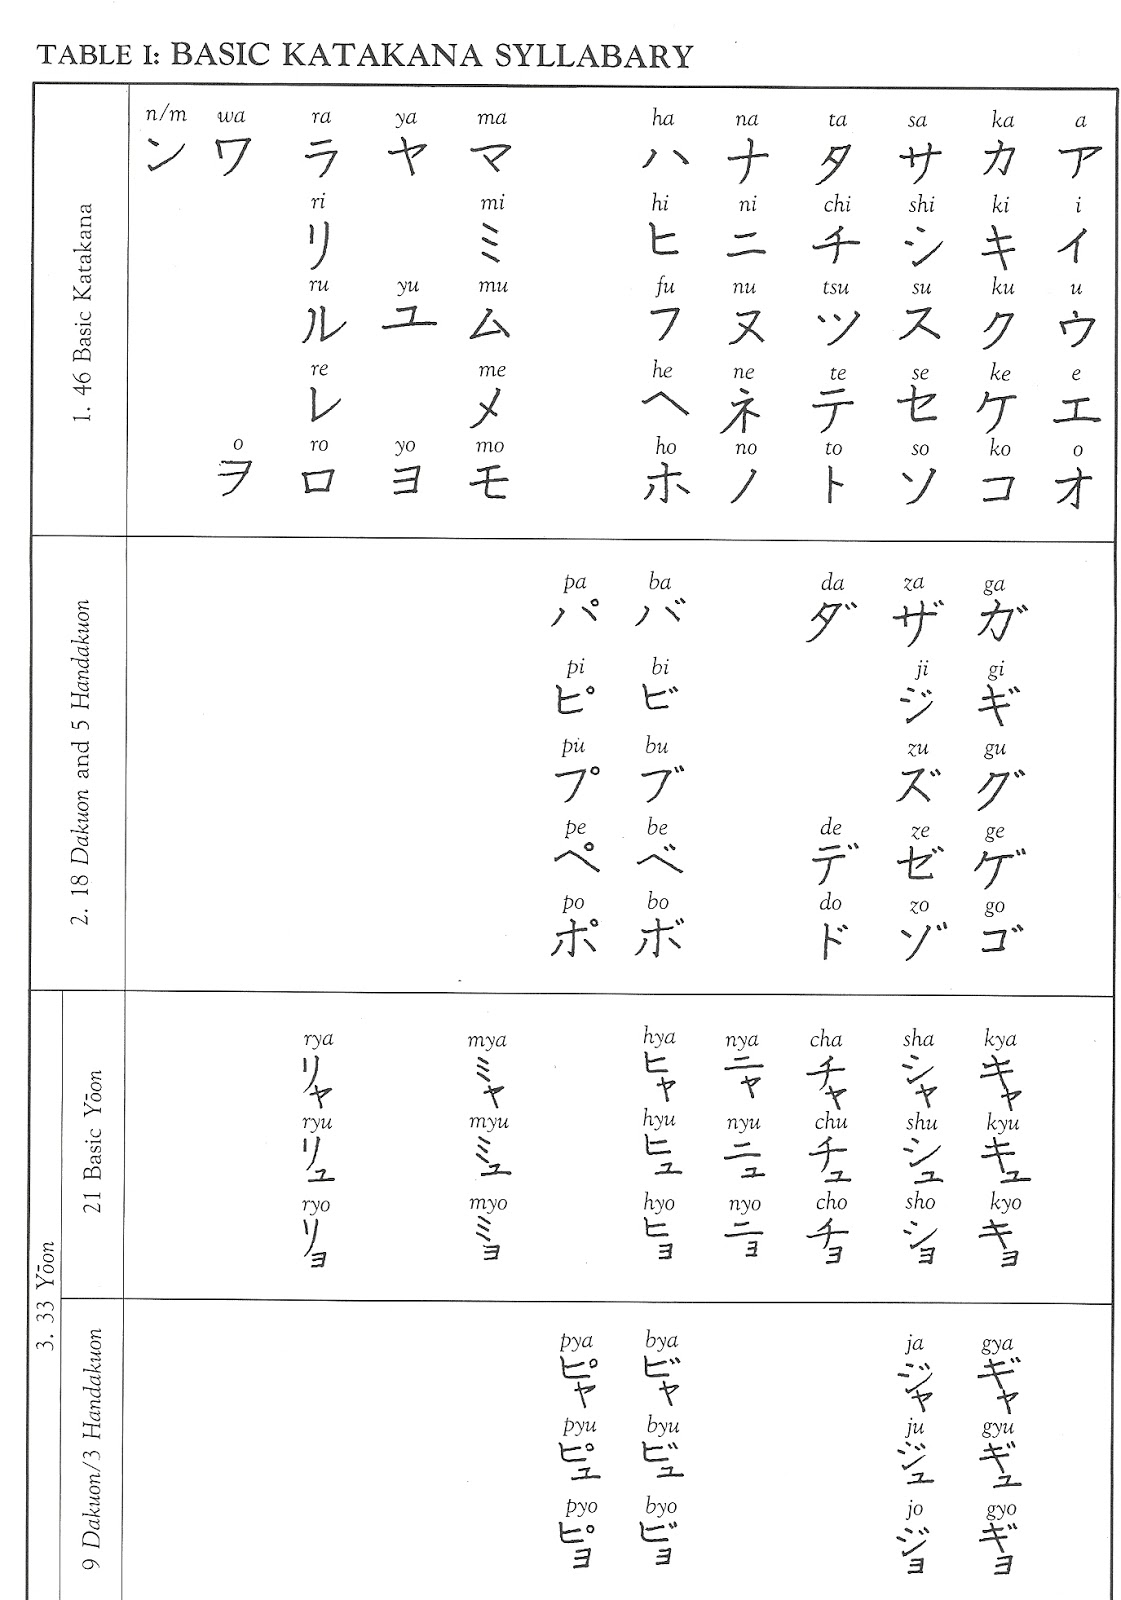 TABLE I: BASIC KATAKANA SYLLABARY
1. 46 Basic Katakana
n/m wa ra ya ma ha na ta sa ka a
ン ワ ラ ヤ マ ハ ナ タ サ カ ア
ri mi hi ni chi shi ki i
リ ミ ヒ ニ チ シ キ イ
ru yu mu fu nu tsu su ku u
ル ユ ム フ ヌ ツ ス ク ウ
re me he ne te se ke e
レ メ ヘ ネ テ セ ケ エ
o ro yo mo ho no to so ko o
ヲ ロ ヨ モ ホ ノ ト ソ コ オ
2. 18 Dakuon and 5 Handakuon
pa ba da za ga
パ バ ダ ザ ガ
pi bi ji gi
ピ ビ ジ ギ
pu bu zu gu
プ ブ ズ グ
pe be de ze ge
ペ ベ デ ゼ ゲ
po bo do zo go
ポ ボ ド ゾ ゴ
3. 33 Yōon
21 Basic Yōon
rya mya hya nya cha sha kya
リャ ミャ ヒャ ニャ チャ シャ キャ
ryu myu hyu nyu chu shu kyu
リュ ミュ ヒュ ニュ チュ シュ キュ
ryo myo hyo nyo cho sho kyo
リョ ミョ ヒョ ニョ チョ ショ キョ
9 Dakuon/3 Handakuon
pya bya ja gya
ピャ ビャ ジャ ギャ
pyu byu ju gyu
ピュ ビュ ジュ ギュ
pyo byo jo gyo
ピョ ビョ ジョ ギョ